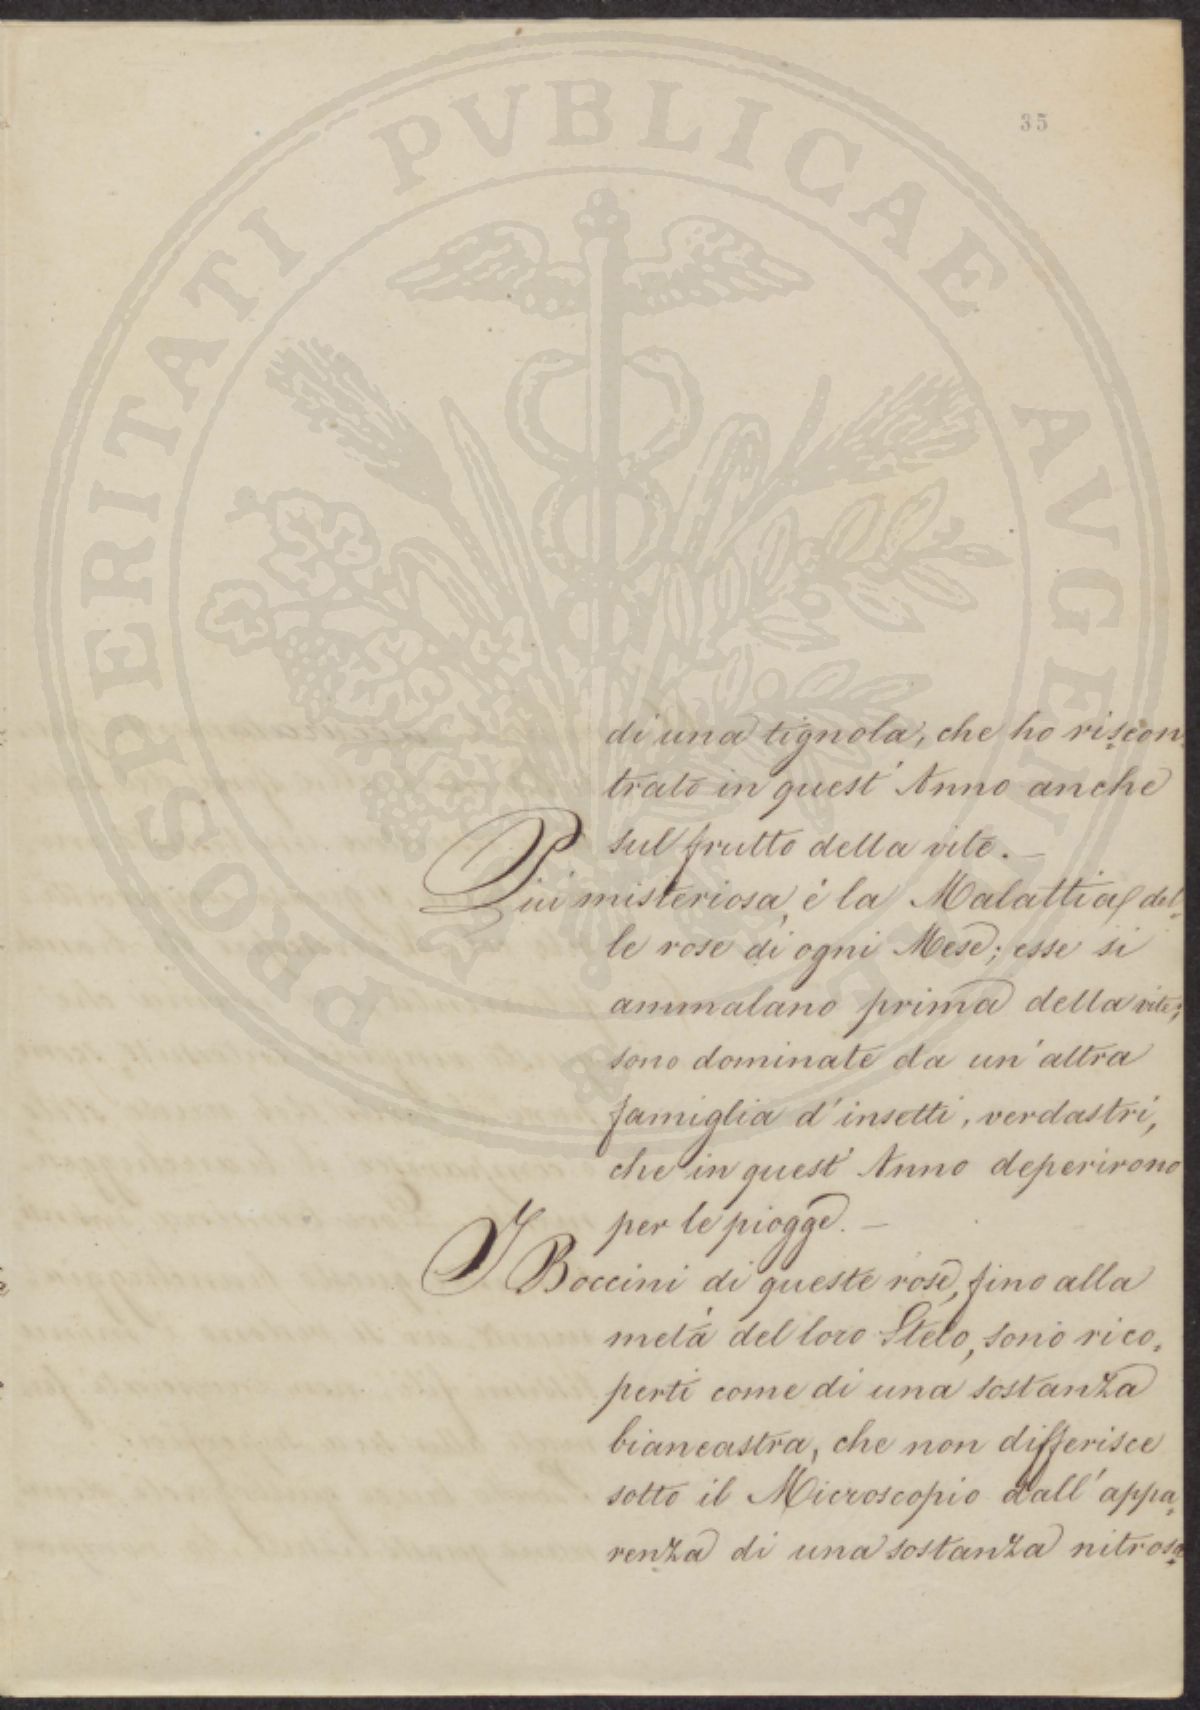 35
PROSPERITATI PVBLICAE AVGEN
di una tignola, che ho riscon-
trato in quest' Anno anche
sul frutto della vite. —
Piú misteriosa, é la Malattia del-
le rose di ogni Mese; esse si
ammalano prima della vite;
sono dominate da un' altra
famiglia d' insetti, verdastri,
che in quest' Anno deperirono
per le piogge. —
I Boccini di queste rose, fino alla
metá del loro Stelo, sono rico-
perti come di una sostanza
biancastra, che non differisce
sotto il Microscopio dall' appa-
renza di una sostanza nitrosa